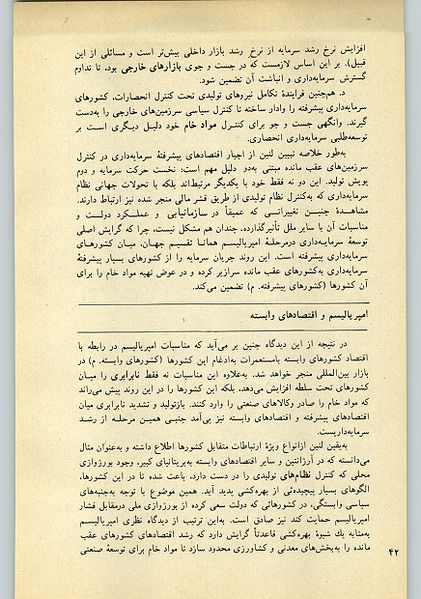 افزایش نرخ رشد سرمایه از نرخ رشد بازار داخلی بیش‌تر است و مسائلی از این
قبیل). بر این اساس لازمست که در جست و جوی بازارهای خارجی بود، تا تداوم
گسترش سرمایه‌داری و انباشت آن تضمین شود.
د. همچنین فرایندهٔ تکامل نیروهای تولیدی تحت کنترل انحصارات، کشورهای
سرمایه‌داری پیشرفته را وادار ساخته تا کنترل سیاسی سرزمین‌های خارجی را به‌دست
گیرند. وانگهی جست و جو برای کنترل مواد خام خود دلیل دیگری است بر
توسعه‌طلبی سرمایه‌داری انحصاری.
به‌طور خلاصه تبیین لنین از اجبار اقتصادهای پیشرفتهٔ سرمایه‌داری در کنترل
سرزمین‌های عقب مانده مبتنی به‌دو دلیل مهم است: نخست حرکت سرمایه و دوم
پویش تولید. این دو نه فقط خود با یکدیگر مرتبط‌اند بلکه با تحولات جهانی نظام
سرمایه‌داری که به‌کنترل نظام تولیدی از طریق قشر مالی منجر شده نیز ارتباط دارند.
مشاهدهٔ چنین تغییراتی که عمیقاً در سازمانیابی و عملکرد دولت و
مناسبات آن با سایر ملل تأثیرگذارده، چندان هم مشکل نیست، چرا که گرایش اصلی
توسعهٔ سرمایه‌داری درمرحلهٔ امپریالیسم همانا تقسیم جهان، میان کشورهای
سرمایه‌داری پیشرفته است. این روند جریان سرمایه را از کشورهای بسیار پیشرفتهٔ
سرمایه‌داری به‌کشورهای عقب مانده سرازیر کرده و در عوض تهیه مواد خام را برای
آن کشورها (کشورهای پیشرفته. م) تضمین می‌کند.
امپریالیسم و اقتصادهای وابسته
در نتیجه از این دیدگاه چنین بر می‌آید که مناسبات امپریالیسم در رابطه با
اقتصاد کشورهای وابسته یامستعمرات به‌ادغام این کشورها (کشورهای وابسته. م) در
بازار بین‌المللی منجر خواهد شد. به‌علاوه این مناسبات نه فقط نابرابری را میان
کشورهای تحت سلطه افزایش می‌دهد، بلکه این کشورها را در این روند پیش می‌راند
که مواد خام را صادر وکالاهای صنعتی را وارد کنند. بازتولید و تشدید نابرابری میان
اقتصادهای پیشرفته و اقتصادهای وابسته نیز برآمد جنبی همین مرحله از رشد
سرمایه‌داریست.
به‌یقین لنین ازانواع ویژهٔ ارتباطات متقابل کشورها اطلاع داشته و به‌عنوان مثال
می‌دانسته که در آرژانتین و سایر اقتصادهای وابسته به‌بریتانیای کبیر، وجود بورژوازی
محلی که کنترل نظام‌های تولیدی را در دست دارد، باعث شده تا در این کشورها،
الگوهای بسیار پیچیده‌تی از بهره‌کشی پدید آید. همین موضوع با توجه به‌جنبه‌های
سیاسی وابستگی، در کشورهائی که دولت سعی کرده از بورژوازی ملی درمقابل فشار
امپریالیسم حمایت کند نیز صادق است. به‌این ترتیب از دیدگاه نظری امپریالیسم
به‌مثابه یك شیوهٔ بهره‌کشی قاعدتاً گرایش دارد که رشد اقتصادهای کشورهای عقب
مانده را به‌بخش‌های معدنی و کشاورزی محدود سازد تا مواد خام برای توسعهٔ صنعتی
۴۲